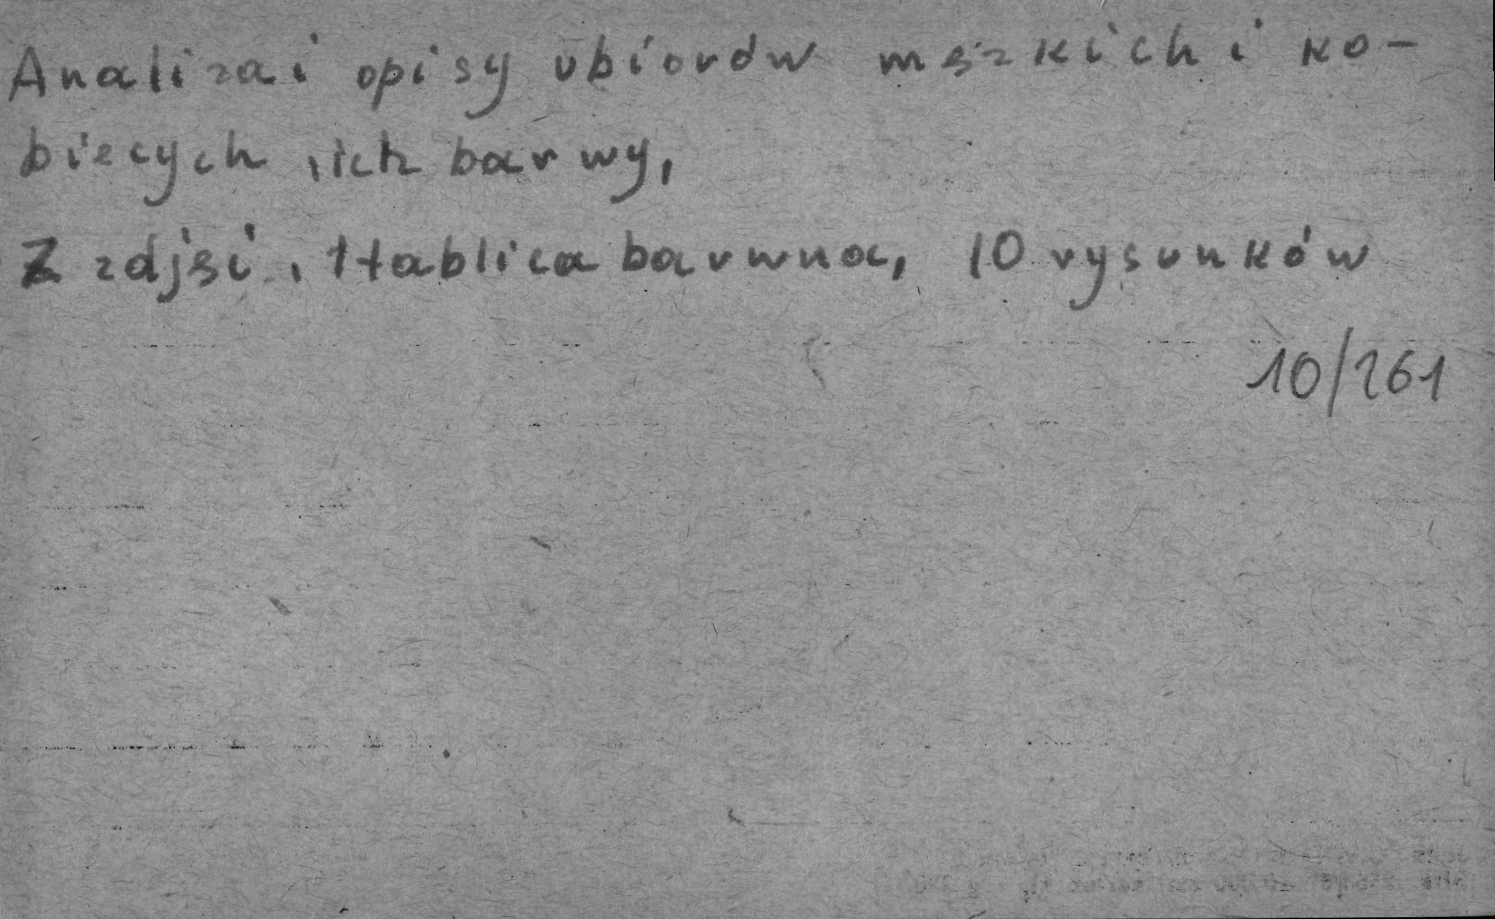 Analiza i opisy ubiorów męzkich i ko-
biecych, ich barwy,
Z zdjęć, 1 tablica barwna, 10 rysunków
10/261